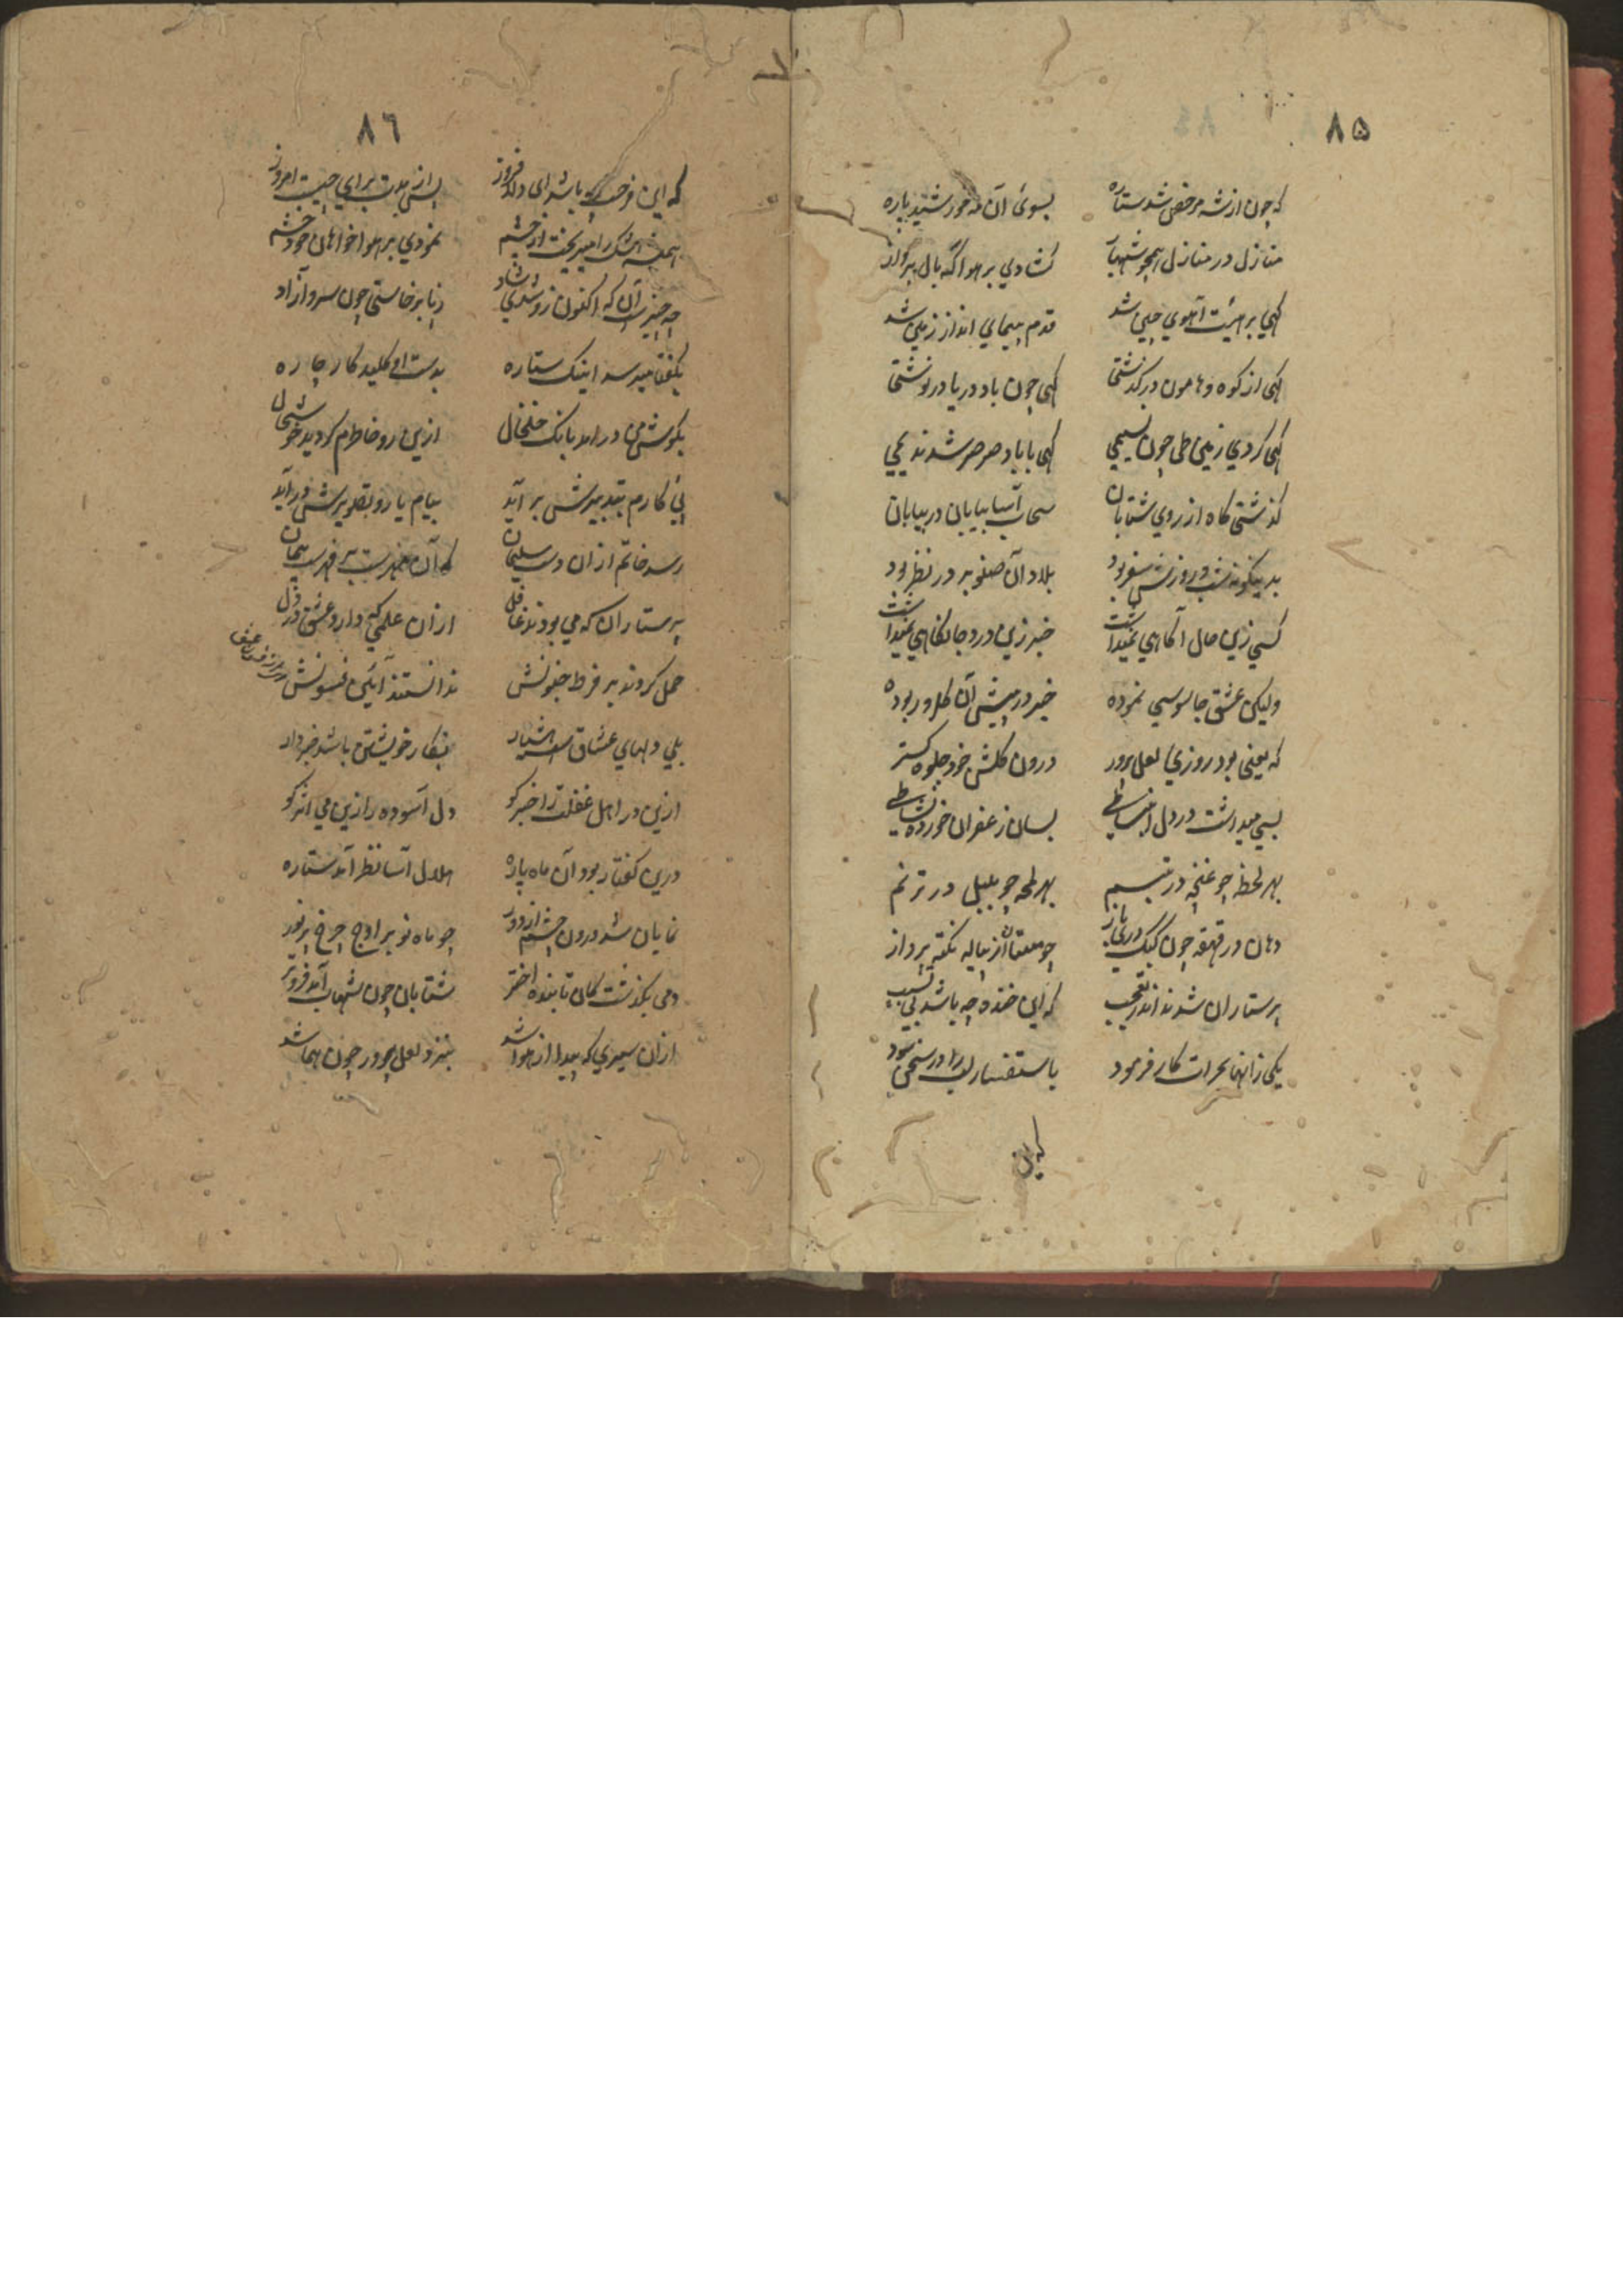 ۸۵
که چون از شه مرخص شد ستاره بسوی آن مه خورشید پاره
منازل در منازل همچو شهباز کشادی بر هوا گه بال پرواز
گهی بر هیئت آهوی چین شد قدم پیمای انداز زمین شد
گهی از کوه و هامون در گذشتی گهی چون باد دریا در نوشتی
گهی کردی زمین طی چون نسیمی گهی با باد صرصر شد ندیمی
گذشتی گاه از روی شتابان سحاب آسا بیابان در بیابان
بدینگونه شب و روزش سفر بود بلاد آن صنوبر در نظر بود
کسی زین حال آگاهی نمیداشت خبر زین درد جانکاهی نمیداشت
ولیکن عشق جاسوسی نموده خبر در پیش آن گلرو ربوده
که یعنی بود روزی لعل پرور درون گلشن خود جلوه گستر
بسی میداشت در دل انبساطی بسان زعفران خورده نشاطی
بهر لحظه چو غنچه در تبسم بهر لمحه چو بلبل در ترنم
دهان در قهقهه چون کبک دری باز چو مستان از پیاله نکته پرداز
پرستاران شدند اندر تعجب که این خنده چه باشد بی تسبب
یکی زانها بجرات کار فرمود باستفسار لب را در سخن سود
که این
۸٦
که این فرحت چه باشد ای دلفروز پس از مدت برای چیست امروز
همیشه اشک را میریخت از چشم نمودی بر هواخواهان خود خشم
چه چیزست آن که اکنون زو شدی شاد ز پا برخاستی چون سرو آزاد
بگفتا میرسد اینک ستاره بدست او کلید کار چاره
بگوش من در آمد بانگ خلخال ازین رو خاطرم گردید خوشحال
پی کارم بتدبیرش بر آید پیام یار و تصویرش در آید
رسد خاتم از ان دست سلیمان که آن مهرست بر فهرست پیمان
پرستاران که می بودند غافل از ان علمی که دارد عشق در دل
حمل کردند بر فرط جنونش ندانستند آئین فسونش
بلی دلهای عشاق است هشیار بکار خویشتن باشد خبردار
ازین در اهل غفلت را خبر کو دل آسوده را زین می اثر کو
درین گفتار بود آن ماه پاره هلال آسا نظر آمد ستاره
نمایان شد درون چشم از دور چو ماه نو بر اوج چرخ پر نور
دمی بگذشت کان تابنده اختر شتابان چون شهاب آمد فروتر
از ان سیری که پیدا از هوا شد بنزد لعل پرور چون هما شد